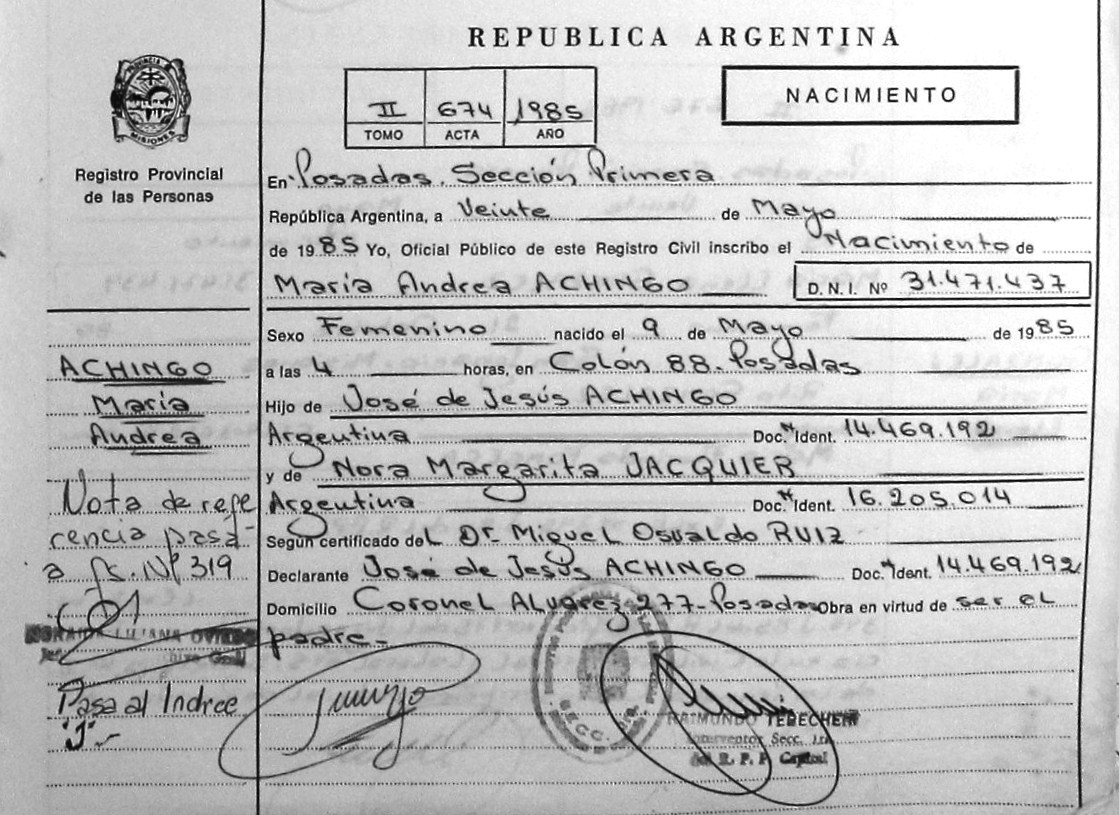 REPUBLICA ARGENTINA
PROVINCIA DE MISIONES
Registro Provincial
de las Personas
II 674 1985
TOMO ACTA AÑO
NACIMIENTO
En Posadas. Sección Primera
República Argentina, a Veinte de Mayo
de 1985 Yo, Oficial Público de este Registro Civil inscribo el Nacimiento de
María Andrea ACHINGO D.N.I. Nº 31.471.437
Sexo Femenino nacido el 9 de Mayo de 1985
a las 4 horas, en Colón 88. Posadas
Hijo de José de Jesús ACHINGO
Argentina Doc. Ident. 14.469.192
y de Nora Margarita JACQUIER
Argentina Doc. Ident. 16.205.014
Según certificado del Dr. Miguel Osvaldo RUIZ
Declarante José de Jesús ACHINGO Doc. Ident. 14.469.192
Domicilio Coronel Alvarez 277-Posadas Obra en virtud de ser el
padre.-
ACHINGO
María
Andrea
Nota de refe
rencia pasa
a fs. Nº 319
LILIANA OVIEDO
Pasa al Indice
"J".-
RAIMUNDO TERECHEN
Interventor Secc. 1ra
del R. P. P. Capital